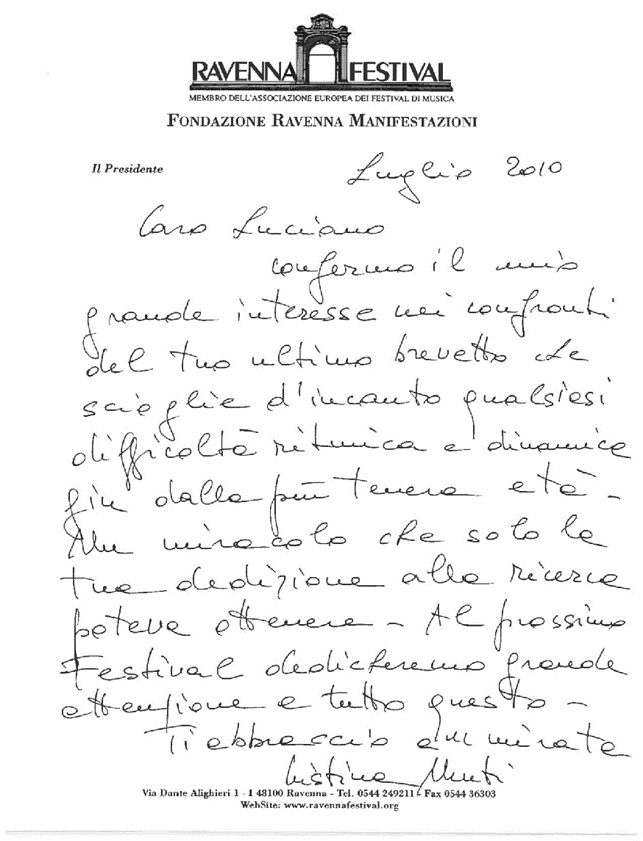 RAVENNA FESTIVAL
MEMBRO DELL'ASSOCIAZIONE EUROPEA DEI FESTIVAL DI MUSICA
FONDAZIONE RAVENNA MANIFESTAZIONI
Il Presidente
Luglio 2010
Caro Luciano
confermo il mio
grande interesse nei confronti
del tuo ultimo brevetto che
scioglie d'incanto qualsiasi
difficoltà ritmica e dinamica
fin dalla più tenera età -
miracolo che solo la
tua dedizione alla ricerca
poteva ottenere - Al prossimo
Festival dedicheremo grande
attenzione a tutto questo -
Ti abbraccio ammirata
Cristina Muti
Via Dante Alighieri 1 - I 48100 Ravenna - Tel. 0544 249211 - Fax 0544 36303
WebSite: www.ravennafestival.org